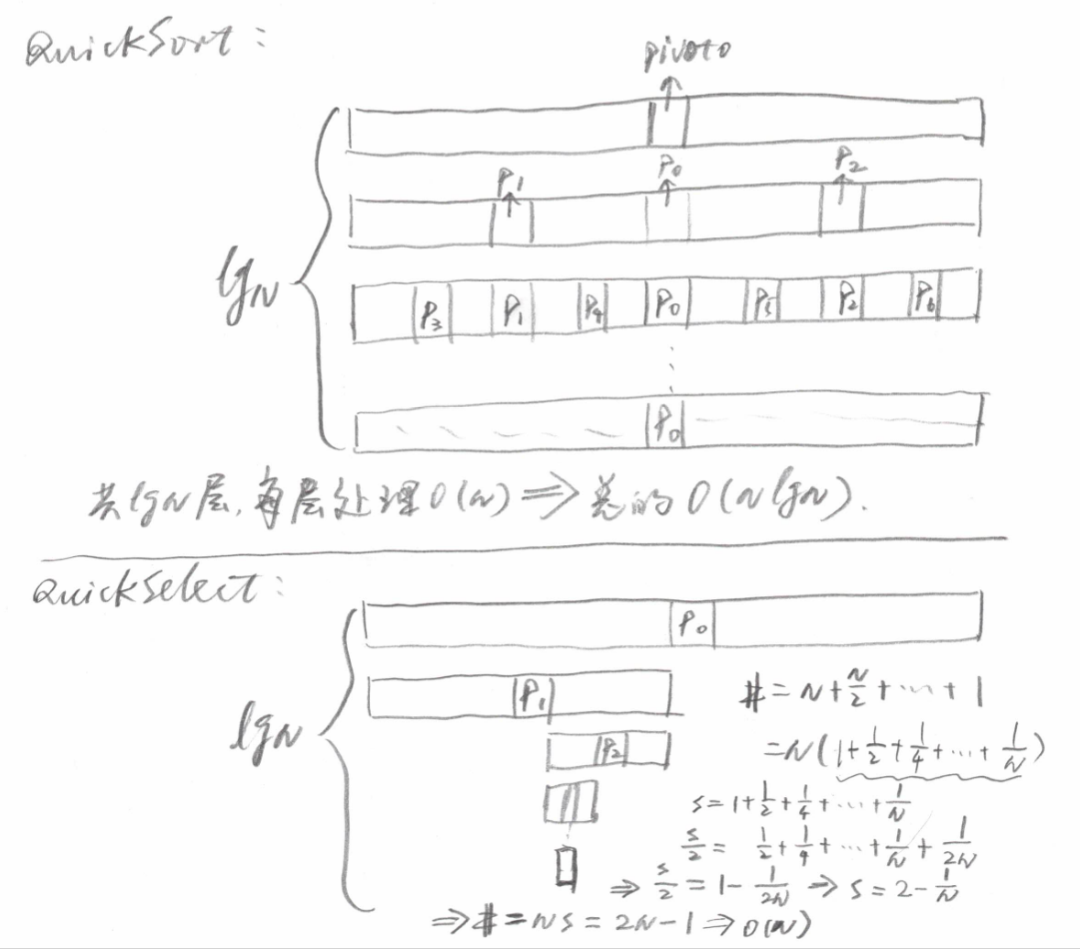 QuickSort:
pivot0
P1 P0 P2
lgN
P3 P1 P4 P0 P5 P2 P6
P0
共lgN层,每层处理O(N)⇒总的O(NlgN).
QuickSelect:
P0
P1
lgN
P2
# = N + N/2 + ... + 1
= N(1 + 1/2 + 1/4 + ... + 1/N)
S = 1 + 1/2 + 1/4 + ... + 1/N
S/2 = 1/2 + 1/4 + ... + 1/N + 1/2N
⇒ S/2 = 1 - 1/2N ⇒ S = 2 - 1/N
⇒ # = NS = 2N - 1 ⇒ O(N)